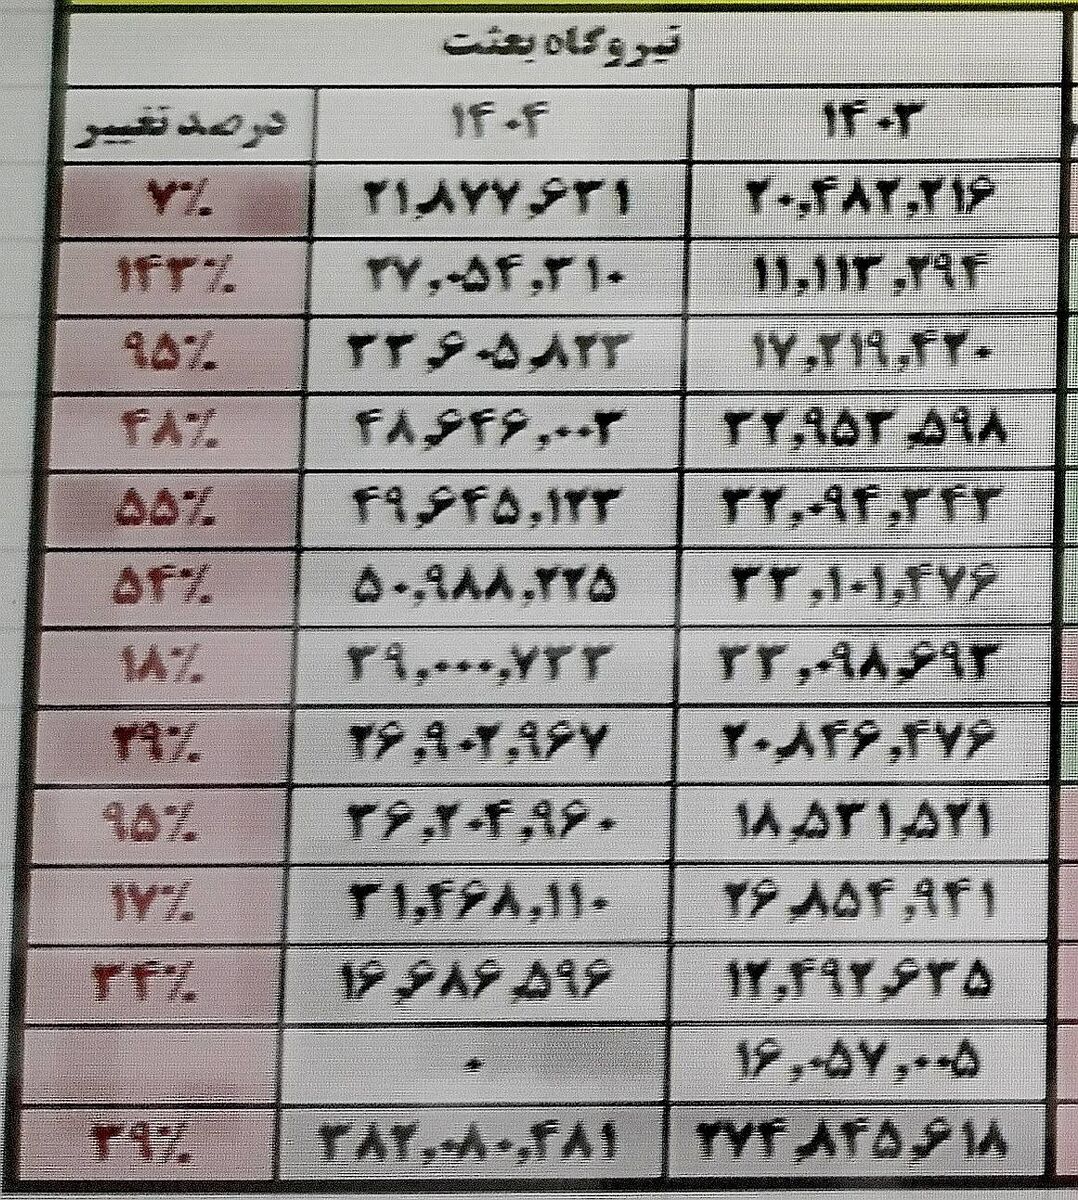 نیروگاه بعثت
۱۴۰۳ ۱۴۰۴ درصد تغییر
۲۰,۴۸۲,۲۱۶ ۲۱,۸۷۷,۶۳۱ ۷٪
۱۱,۱۱۳,۲۹۴ ۲۷,۰۵۴,۳۱۰ ۱۴۳٪
۱۷,۲۱۹,۴۲۰ ۳۳,۶۰۵,۸۲۳ ۹۵٪
۳۲,۹۵۳,۵۹۸ ۴۸,۶۴۶,۰۰۳ ۴۸٪
۳۲,۰۹۴,۳۴۳ ۴۹,۶۴۵,۱۲۳ ۵۵٪
۳۳,۱۰۱,۴۷۶ ۵۰,۹۸۸,۲۲۵ ۵۴٪
۳۳,۰۹۸,۶۹۳ ۳۹,۰۰۰,۷۳۳ ۱۸٪
۲۰,۸۴۶,۴۷۶ ۲۶,۹۰۲,۹۶۷ ۲۹٪
۱۸,۵۳۱,۵۲۱ ۳۶,۲۰۴,۹۶۰ ۹۵٪
۲۶,۸۵۴,۹۴۱ ۳۱,۴۶۸,۱۱۰ ۱۷٪
۱۲,۴۹۲,۶۳۵ ۱۶,۶۸۶,۵۹۶ ۳۴٪
۱۶,۰۵۷,۰۰۵ ۰
۲۷۴,۸۴۵,۶۱۸ ۳۸۲,۰۸۰,۴۸۱ ۳۹٪